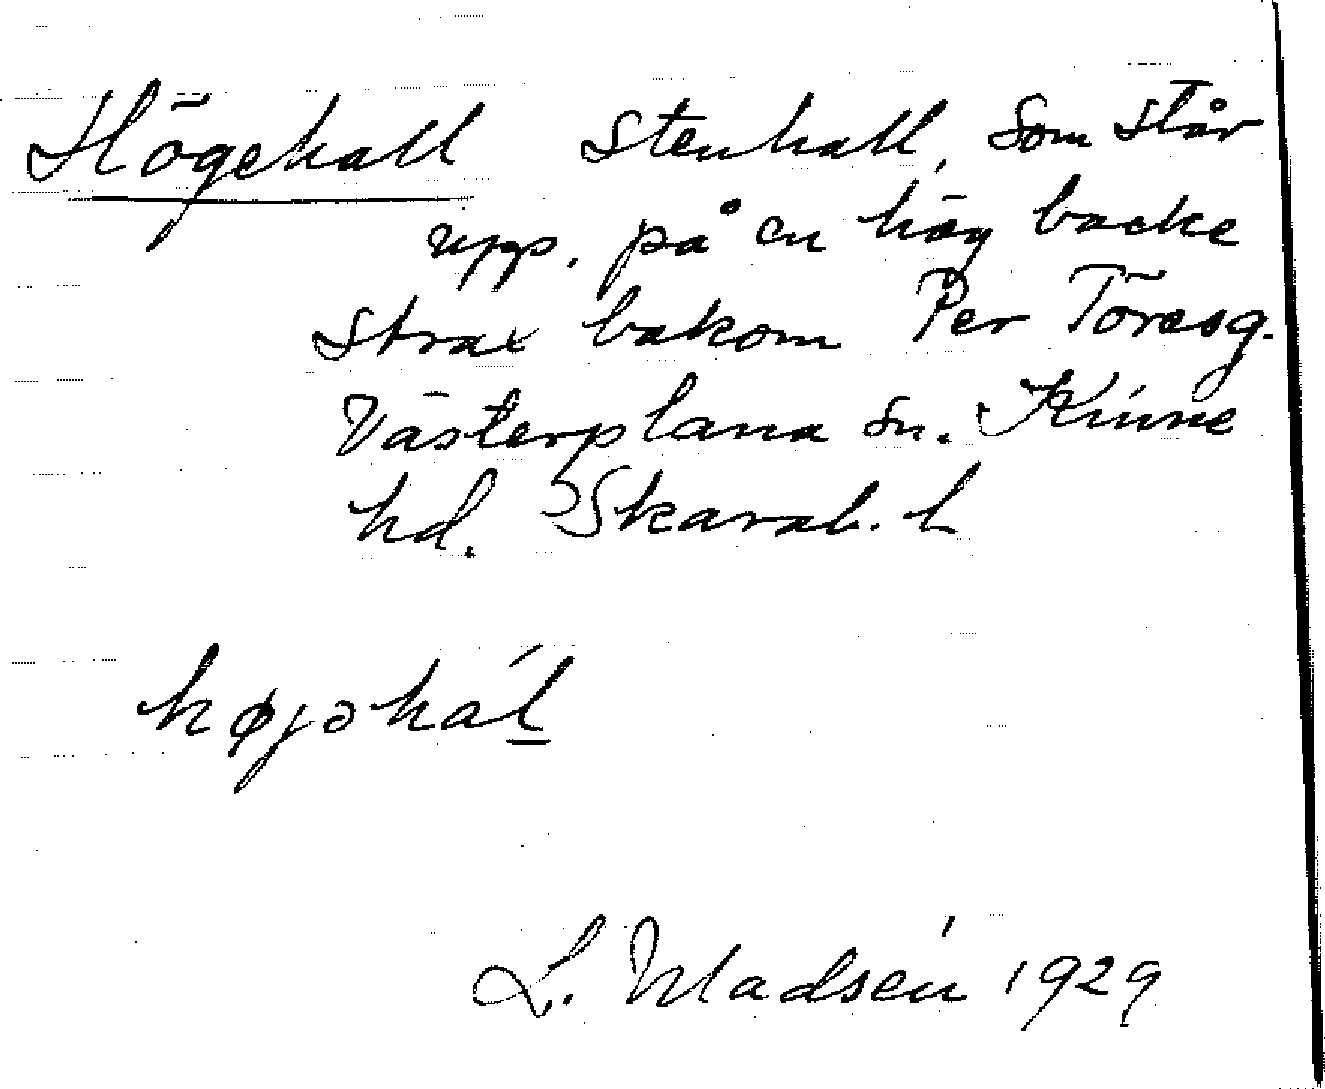 Högehall Stenhall, som står
upp. på en hög backe
strax bakom Per Töresg.
Västerplana sn. Kinne
hd. Skarab. l
højəhál
L. Madsén 1929